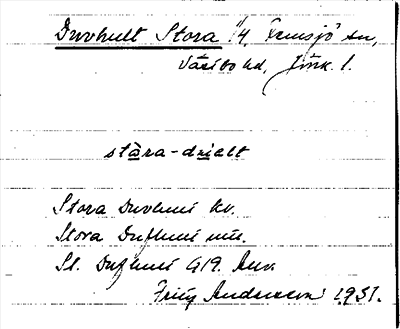 Duvhult Stora 1/4, Femsjö sn,
Västbo hd, Jönk. l.
stàra-dɐɪalt
Stora Duvhult kv.
Stora Dufhult mtl.
St. Dufhult G19. Anv.
Fritz Andersson 1931.